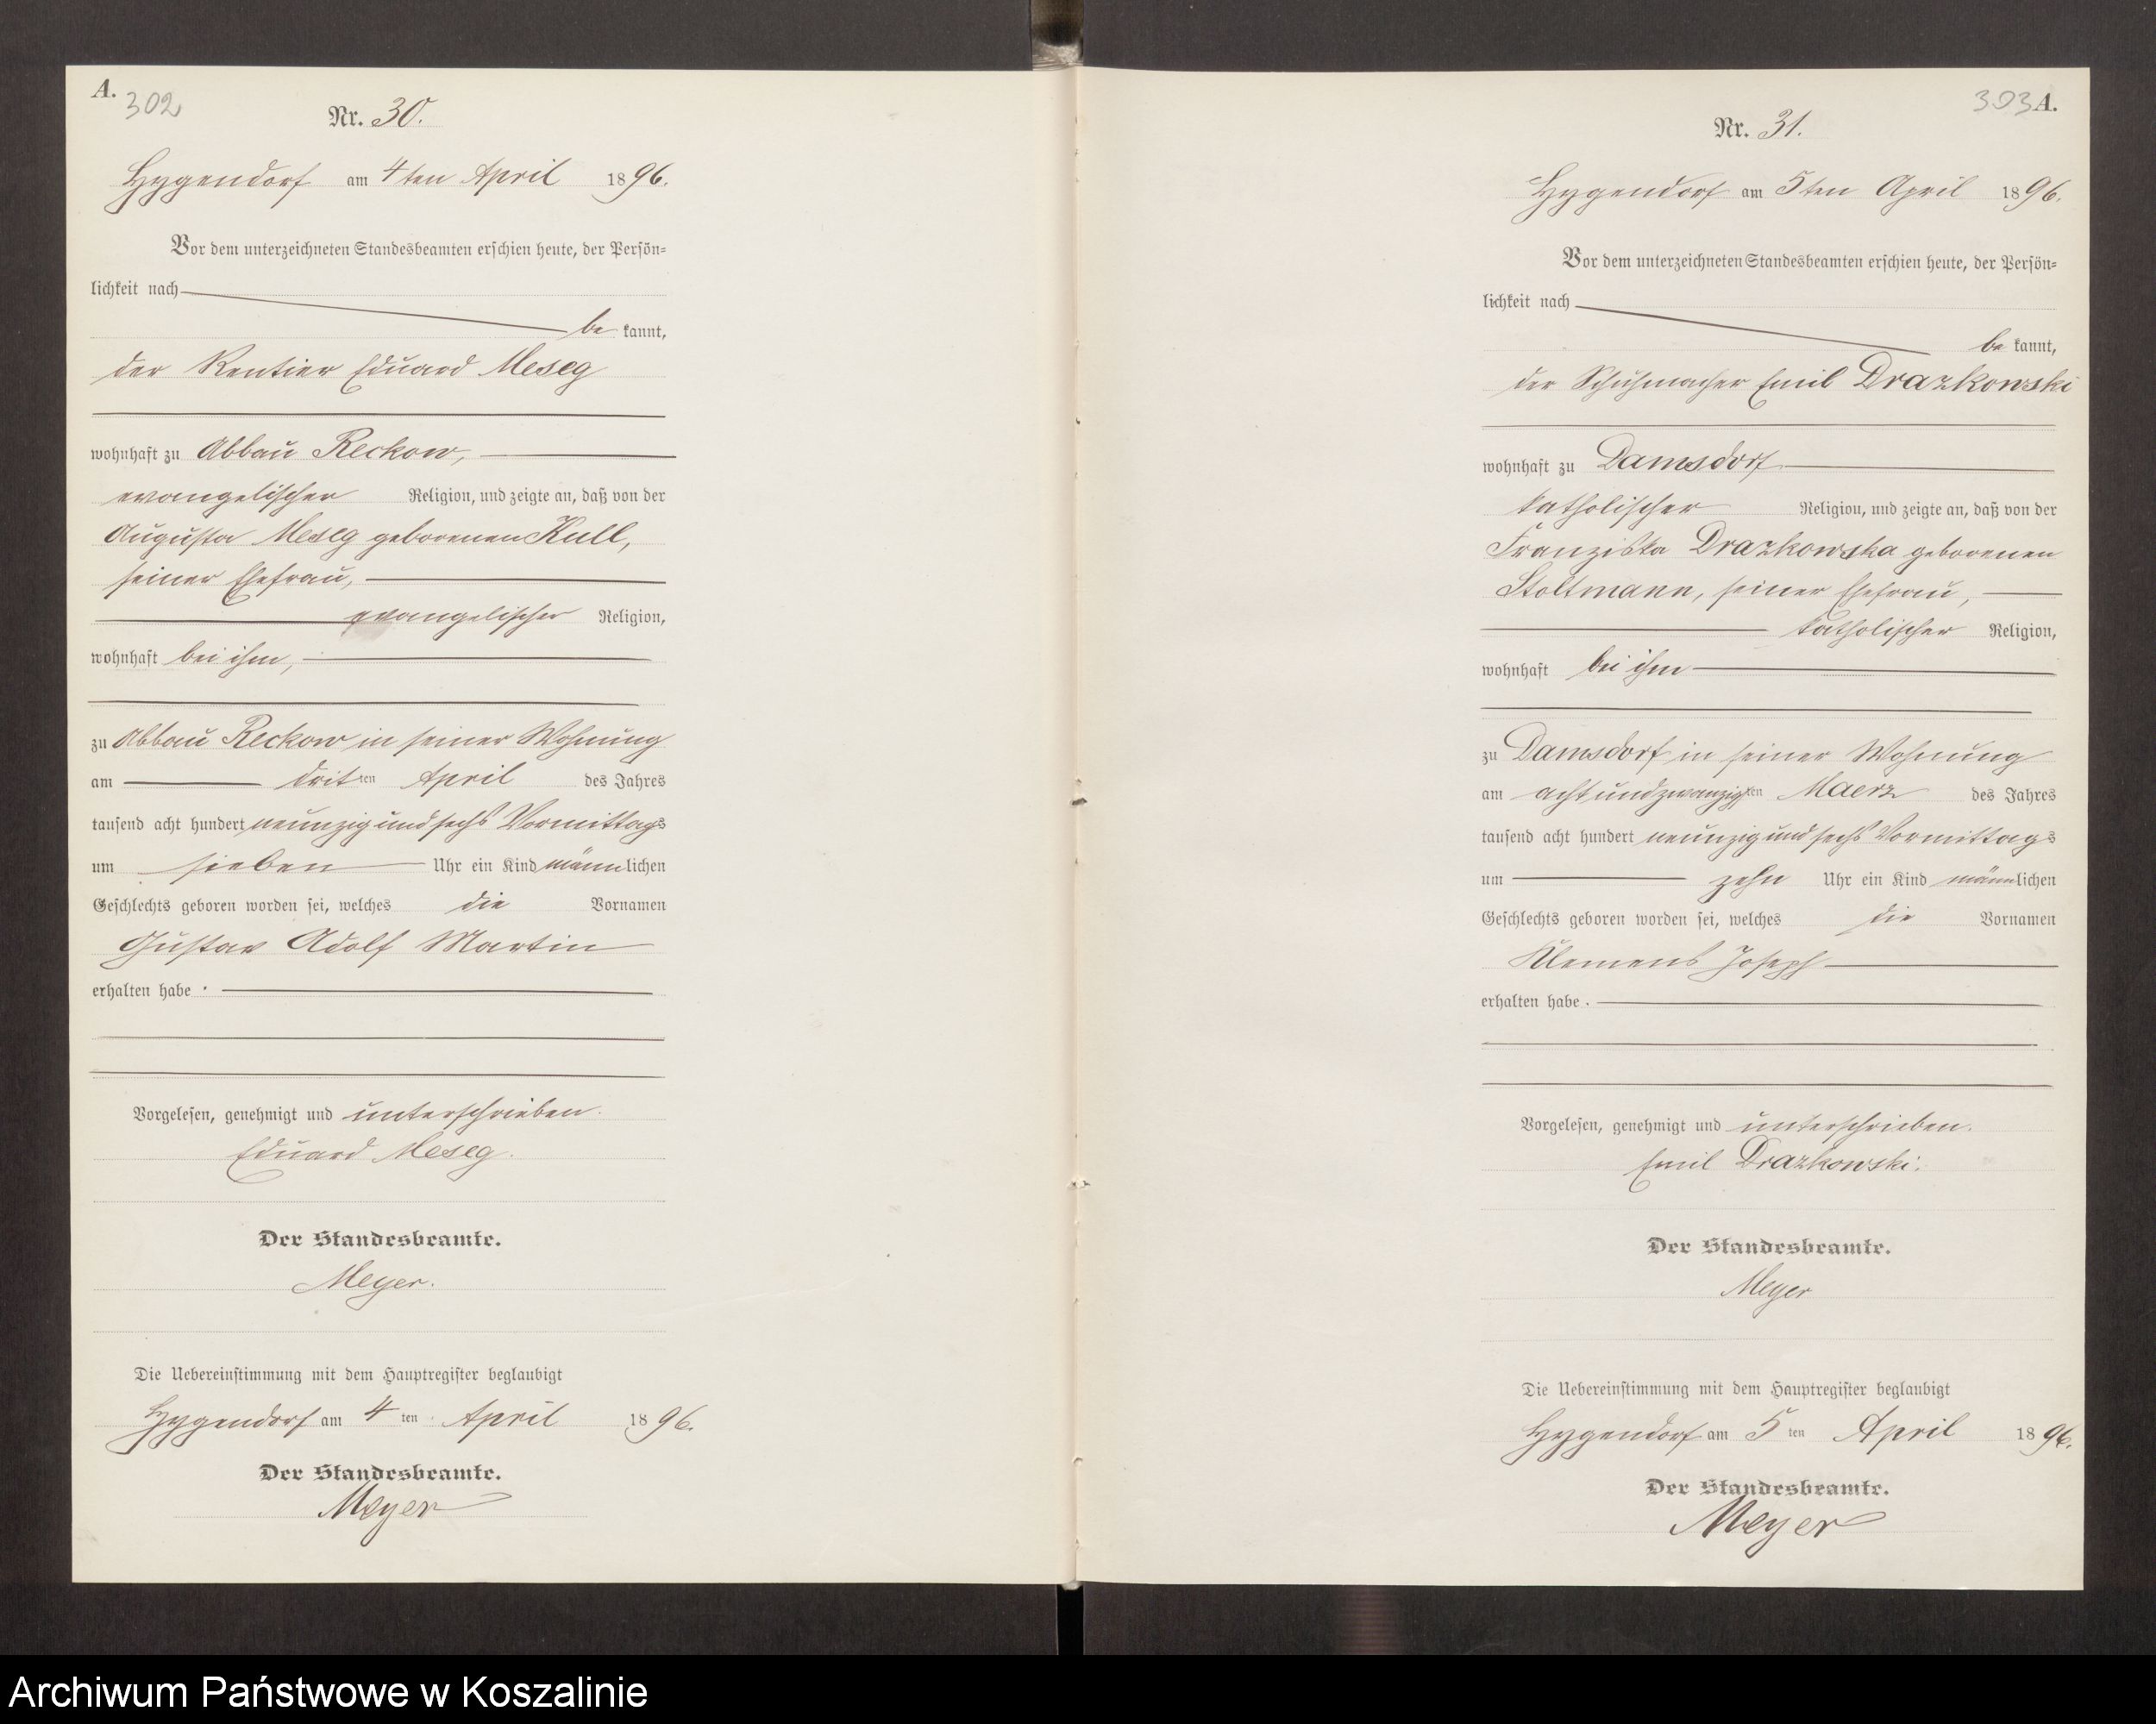 A.
302
Nr. 30.
Hygendorf am 4ten April 1896.
Vor dem unterzeichneten Standesbeamten erschien heute, der Persön-
lichkeit nach
be kannt,
der Rentier Eduard Meseg
wohnhaft zu Abbau Reckow,
evangelischer Religion, und zeigte an, daß von der
Augusta Meseg geborenen Kull,
seiner Ehefrau,
evangelischer Religion,
wohnhaft bei ihm,
zu Abbau Reckow in seiner Wohnung
am dritten April des Jahres
tausend acht hundert neunzig und sechs Vormittags
um sieben Uhr ein Kind männlichen
Geschlechts geboren worden sei, welches die Vornamen
Gustav Adolf Martin
erhalten habe.
Vorgelesen, genehmigt und unterschrieben.
Eduard Meseg.
Der Standesbeamte.
Meyer.
Die Uebereinstimmung mit dem Hauptregister beglaubigt
Hygendorf am 4 ten April 1896.
Der Standesbeamte.
Meyer
303 A.
Nr. 31.
Hygendorf am 5ten April 1896.
Vor dem unterzeichneten Standesbeamten erschien heute, der Persön-
lichkeit nach
be kannt,
der Schuhmacher Emil Drazkowski
wohnhaft zu Damsdorf
katholischer Religion, und zeigte an, daß von der
Franziska Drazkowska geborenen
Stoltmann, seiner Ehefrau,
katholischer Religion,
wohnhaft bei ihm
zu Damsdorf in seiner Wohnung
am achtundzwanzigsten Maerz des Jahres
tausend acht hundert neunzig und sechs Vormittags
um zehn Uhr ein Kind männlichen
Geschlechts geboren worden sei, welches die Vornamen
Klemens Joseph
erhalten habe.
Vorgelesen, genehmigt und unterschrieben.
Emil Drazkowski.
Der Standesbeamte.
Meyer
Die Uebereinstimmung mit dem Hauptregister beglaubigt
Hygendorf am 5 ten April 1896.
Der Standesbeamte.
Meyer
Archiwum Państwowe w Koszalinie